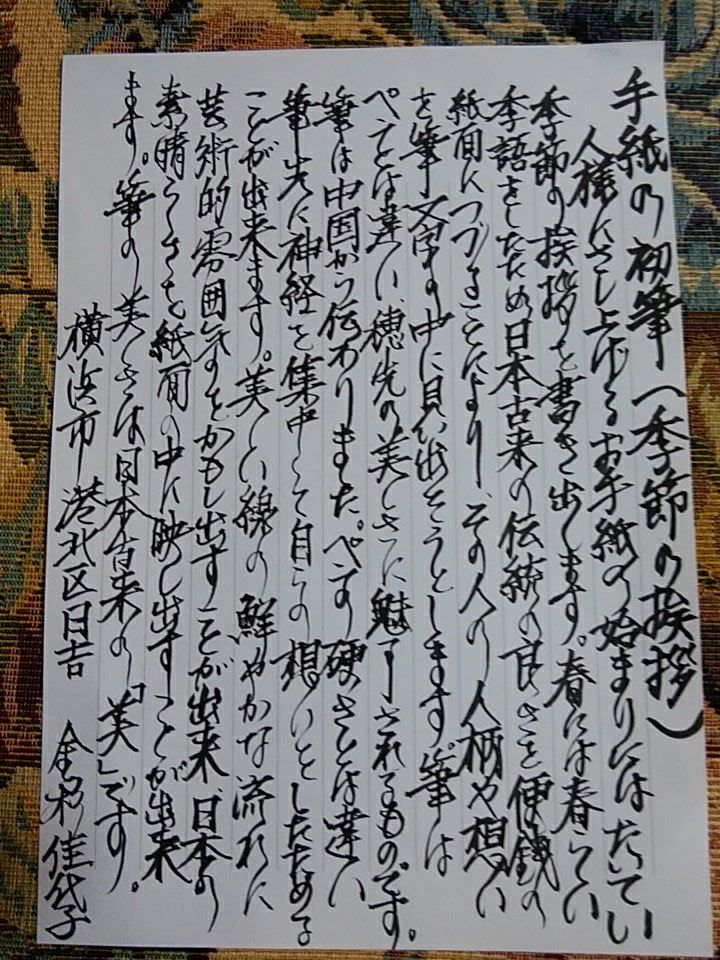 手紙の初筆（季節の挨拶）
人様にさし上げるお手紙の始まりにはたいてい
季節の挨拶を書き出します。春には春らしい
季語をしたため日本古来の伝統の良さを便箋の
紙面につづることにより、その人の人柄や想い
を筆文字の中に見い出そうとします。筆は
ペンとは違い、穂先の美しさに魅了されるものです。
筆は中国から伝わりました。ペンの硬さとは違い
筆先に神経を集中して自らの想いをしたためる
ことが出来ます。美しい線の鮮やかな流れに
芸術的雰囲気をかもし出すことが出来、日本の
素晴らしさを紙面の中に映し出すことが出来
ます。筆の美しさは日本古来の「美」です。
横浜市港北区日吉 金杉佳代子